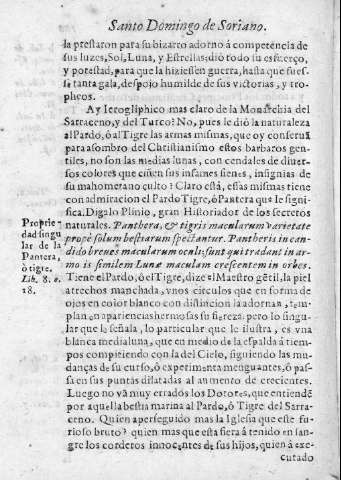 Santo Domingo de Soriano.
la prestaron para su bizarro adorno á competencia de
sus luzes, Sol, Luna, y Estrellas; dió todo su esfuerço,
y potestad, para que la hiziessen guerra, hasta que fues-
se tanta gala, despojo humilde de sus victorias, y tro-
pheos.
Ay Ieroglíphico mas claro de la Monarchia del
Sarraceno, y del Turco? No, pues le dió la naturaleza
al Pardo, ò al Tigre las armas mismas, que oy conserua
para asombro del Christianismo estos barbaros gen-
tiles, no son las medias lunas, con cendales de diuer-
sos colores que ciñen sus infames sienes, insignias de
su mahometano culto? Claro está, essas mismas tiene
con admiracion el Pardo Tigre, ò Pantera que le signi-
fica. Digalo Plinio, gran Historiador de los secretos
naturales. Panthera, & tigris macularum varietate
propè solum bestiarum spectantur. Pantheris in can-
dido breues macularum oculi; sunt qui tradant in ar-
mo iis similem Lunæ maculam crescentem in orbes.
Proprie-
dad singu
lar de la
Pantera,
ò tigre.
Lib. 8. c.
18.
Tiene el Pardo, ò el Tigre, dize el Maestro gẽtil, la piel
atrechos manchada, vnos circulos que en forma de
ojos en color blanco con distincion la adornan, tem-
plan en apariencias hermosas su fiereza, pero lo singu-
lar que le señala, lo particular que le ilustra, es vna
blanca media luna, que en medio de la espalda á tiem-
pos compitiendo con la del Cielo, siguiendo las mu-
danças de su curso, ò experimenta menguantes, ò pas-
sa en sus puntas dilatadas al aumento de crecientes.
Luego no vã muy errados los Dotores, que entiendé
por aquella bestia marina al Pardo, ò Tigre del Sarra-
ceno. Quien a perseguido mas la Iglesia que este fu-
rioso bruto? quien mas que esta fiera á tenido en san-
gre los corderos innocentes de sus hijos, quien á exe-
cutado